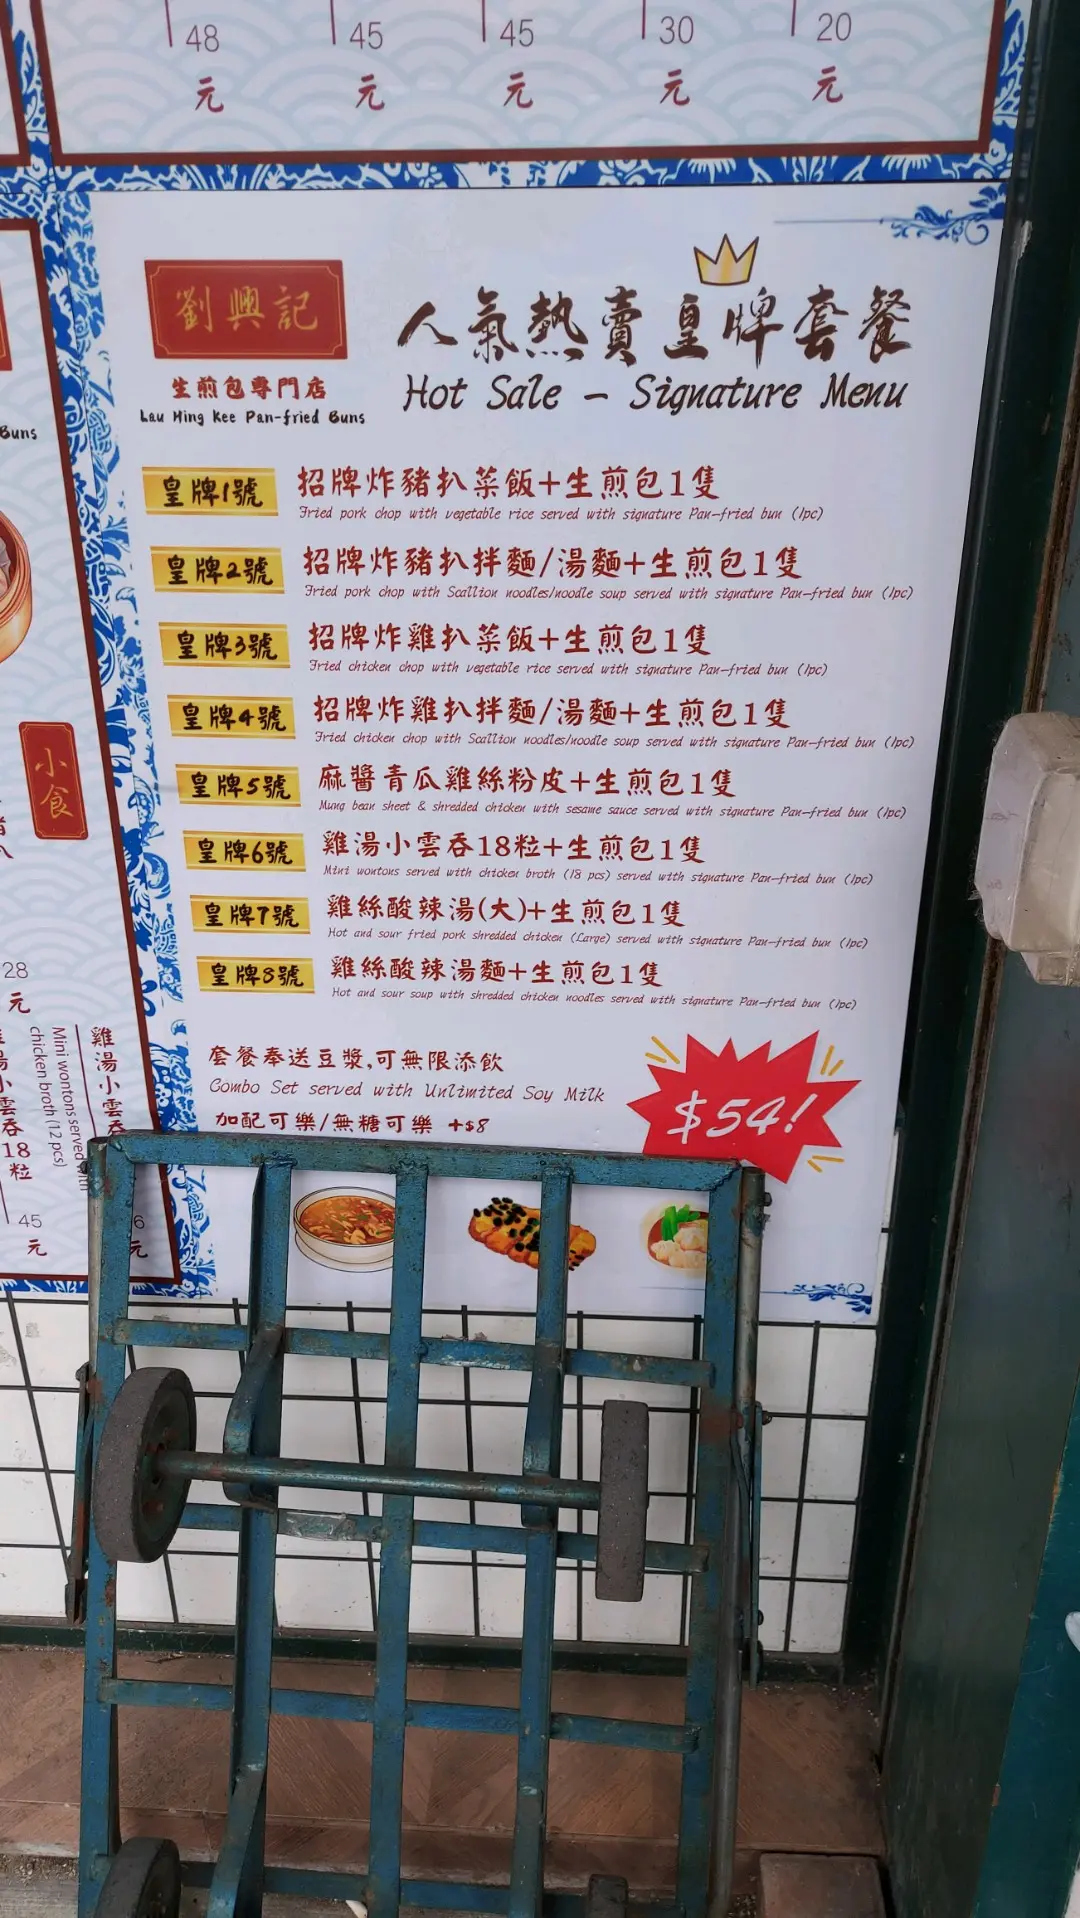 48
元
45
元
45
元
30
元
20
元
Buns
小食
28
元
雞湯小雲吞
Mini wontons served with
chicken broth (12 pcs)
18粒
45
元
6
元
劉興記
生煎包專門店
Lau Hing Kee Pan-fried Buns
人氣熱賣皇牌套餐
Hot Sale – Signature Menu
皇牌1號 招牌炸豬扒菜飯+生煎包1隻
Fried pork chop with vegetable rice served with signature Pan-fried bun (1pc)
皇牌2號 招牌炸豬扒拌麵/湯麵+生煎包1隻
Fried pork chop with Scallion noodles/noodle soup served with signature Pan-fried bun (1pc)
皇牌3號 招牌炸雞扒菜飯+生煎包1隻
Fried chicken chop with vegetable rice served with signature Pan-fried bun (1pc)
皇牌4號 招牌炸雞扒拌麵/湯麵+生煎包1隻
Fried chicken chop with Scallion noodles/noodle soup served with signature Pan-fried bun (1pc)
皇牌5號 麻醬青瓜雞絲粉皮+生煎包1隻
Mung bean sheet & shredded chicken with sesame sauce served with signature Pan-fried bun (1pc)
皇牌6號 雞湯小雲吞18粒+生煎包1隻
Mini wontons served with chicken broth (18 pcs) served with signature Pan-fried bun (1pc)
皇牌7號 雞絲酸辣湯(大)+生煎包1隻
Hot and sour fried pork shredded chicken (Large) served with signature Pan-fried bun (1pc)
皇牌8號 雞絲酸辣湯麵+生煎包1隻
Hot and sour soup with shredded chicken noodles served with signature Pan-fried bun (1pc)
套餐奉送豆漿,可無限添飲
Combo Set served with Unlimited Soy Milk
加配可樂/無糖可樂 +$8
$54!